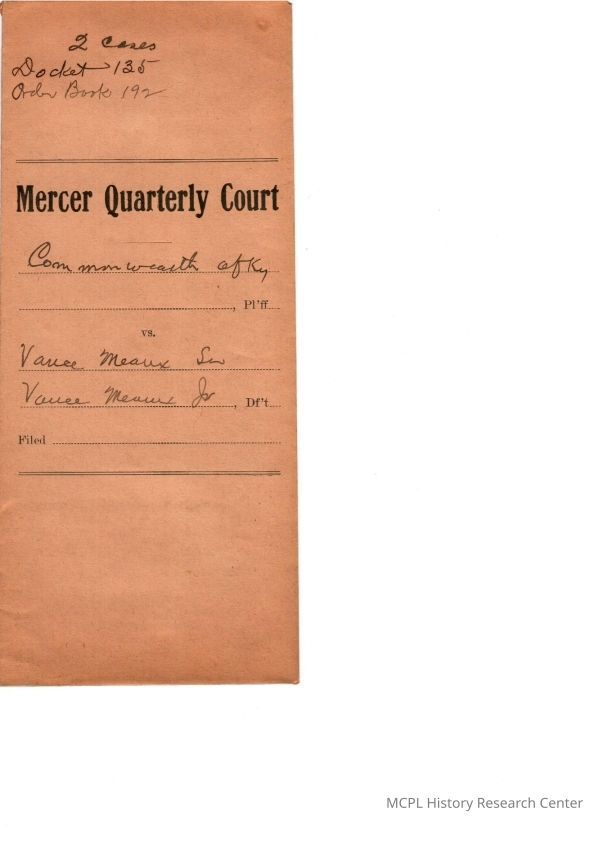 2 cases
Docket 135
Order Book 192
Mercer Quarterly Court
Commonwealth of Ky
, Pl'ff.
vs.
Vance Meaux Sr
Vance Meaux Jr, Df't.
Filed
MCPL History Research Center